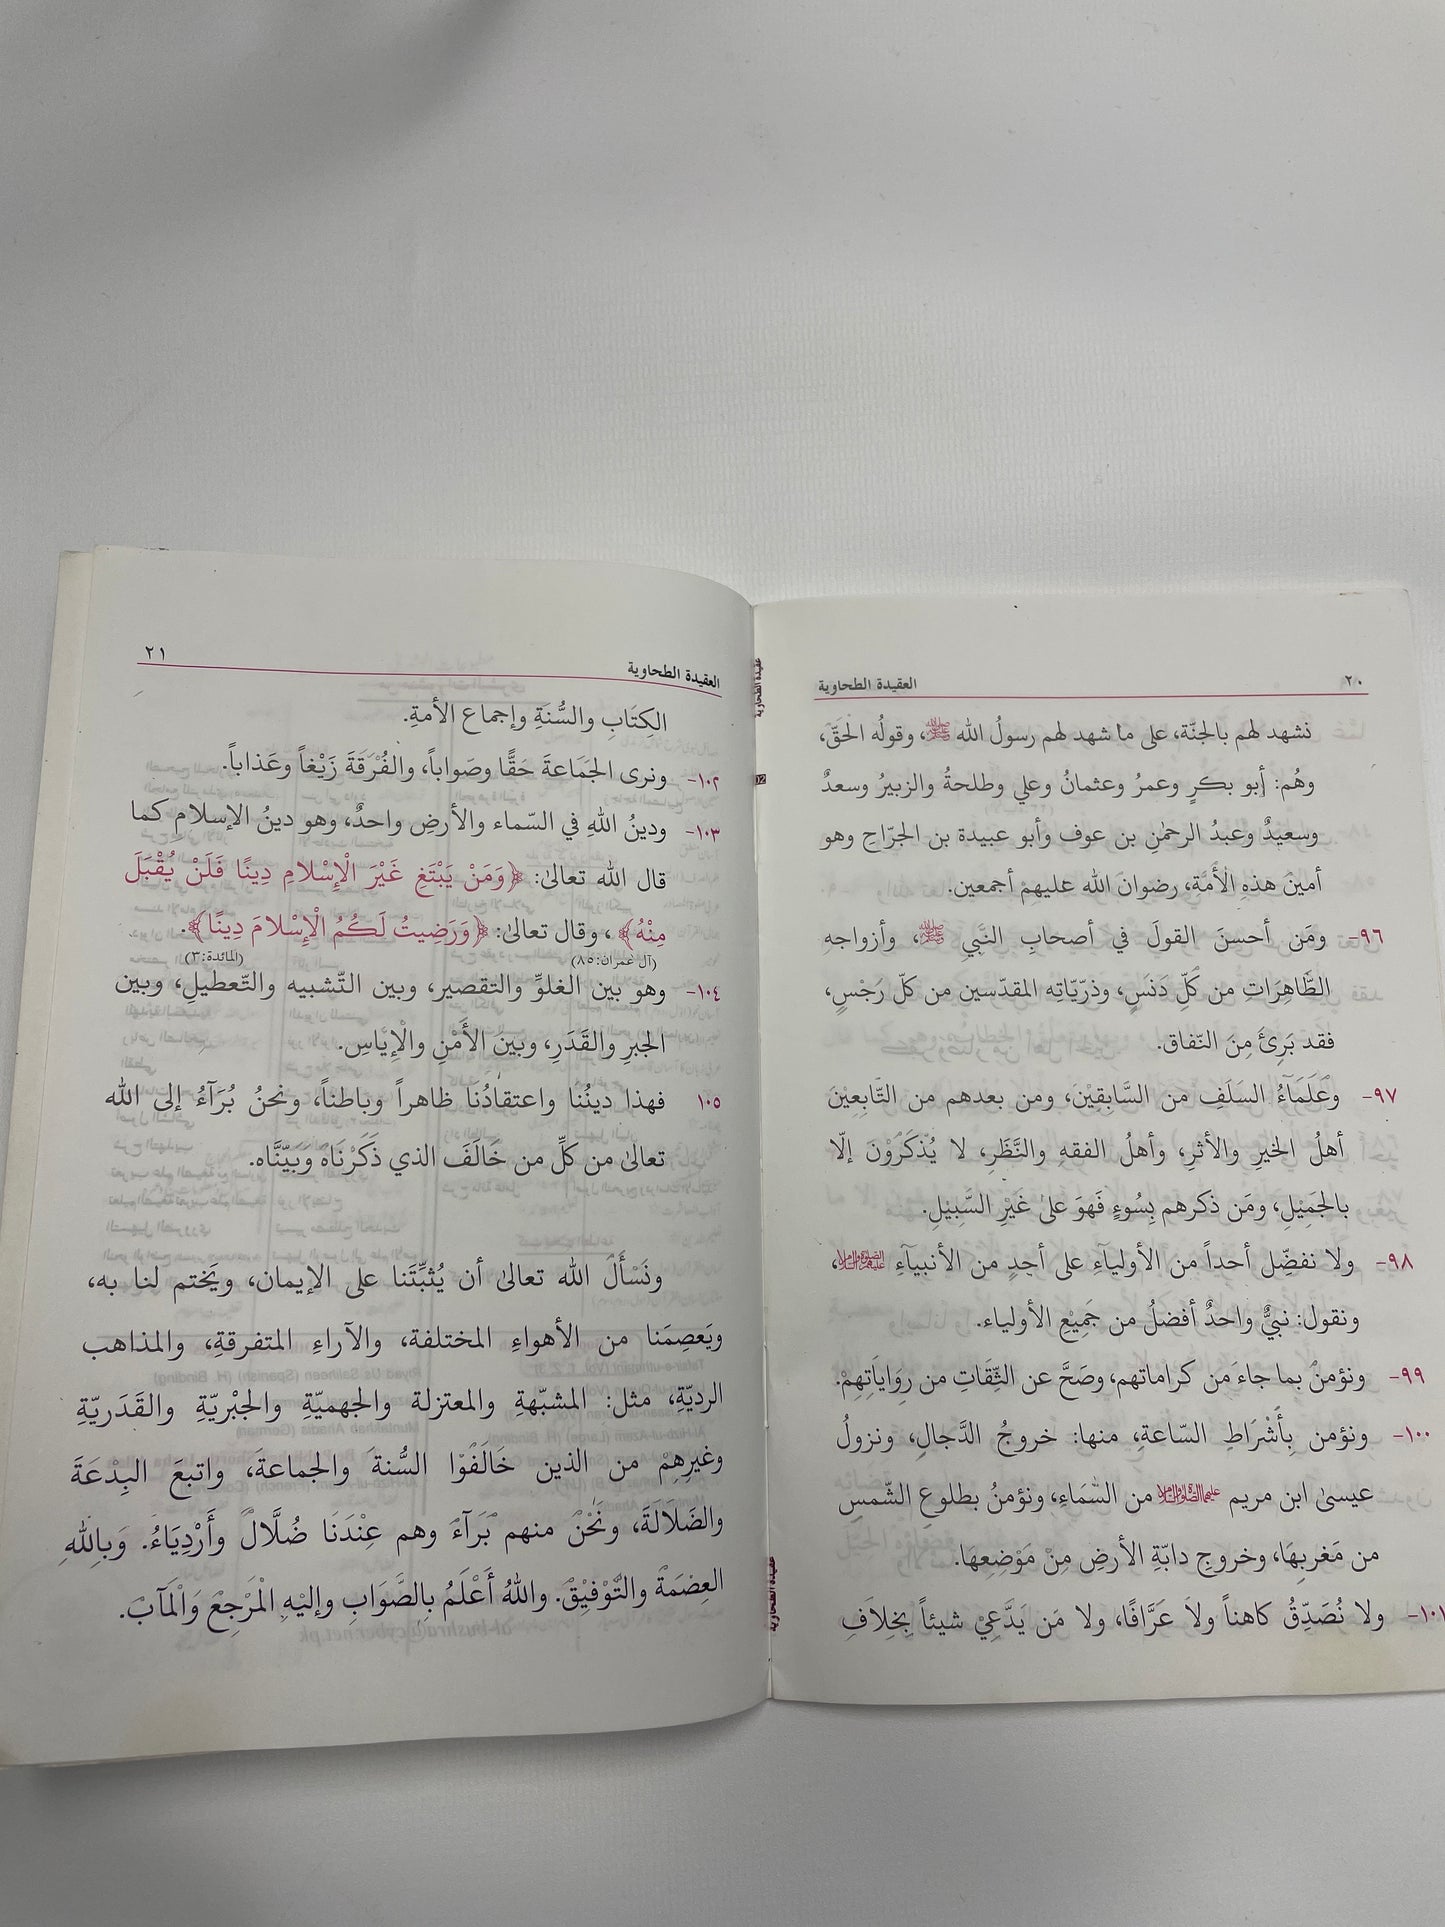 ٢٠
العقيدة الطحاوية
نشهد لهم بالجنّة، على ما شهد لهم رسولُ الله ﷺ، وقولُه الحَقّ،
وهُم: أبو بكرٍ وعمرُ وعثمانُ وعلي وطلحةُ والزبيرُ وسعدٌ
وسعيدٌ وعبدُ الرحمٰنِ بن عوف وأبو عبيدة بن الجرّاح وهو
أمينَ هذهِ الأُمَّةِ، رضوانَ الله عليهمْ أجمعين.
٩٦- ومَن أحسنَ القولَ في أصحابِ النَّبيِ ﷺ، وأزواجهِ
الطَّاهِرَاتِ من كَلِّ دَنَسٍ، وذرّيّاته المقدّسين من كلّ رَجْسٍ،
فقد بَرِئَ مِنَ النّفاق.
٩٧- وعُلَمَاءُ السَلَفِ من السَّابقِيْنَ، ومن بعدهم من التَّابِعِيْنَ
أهلُ الخيرِ والأثرِ، وأهلُ الفقهِ والنَّظَرِ، لا يُذْكَرُوْنَ إلّا
بالجَمِيْلِ، ومَن ذكرهم بِسُوءٍ فَهُوَ علىٰ غَيْرِ السَّبِيْلِ.
٩٨- ولا نفضّل أحداً من الأولياءِ على أحدٍ من الأنبياءِ عليهم الصلوة والسلام،
ونقول: نبيٌّ واحدٌ أفضلُ من جَمِيْعِ الأولياء.
٩٩- ونؤمنُ بما جاءَ من كراماتهم، وصَحَّ عن الثِّقَاتِ من رِوَايَاتِهِمْ.
١٠٠- ونؤمن بِأَشْرَاطِ السّاعةِ، منها: خروجُ الدَّجالِ، ونزولُ
عيسىٰ ابن مريم عليهما الصلوة والسلام من السَّمَاءِ، ونؤمنُ بطلوعِ الشّمسِ
من مَغربِهَا، وخروجِ دابّةِ الأرضِ مِنْ مَوْضِعِهَا.
١٠١- ولا نُصَدِّقُ كاهناً ولاَ عَرَّافًا، ولا مَن يَدَّعِيْ شيئاً بِخِلاَفِ
عقيدة الطحاوية
02
عقيدة الطحاوية
٢١
العقيدة الطحاوية
الكِتَابِ والسُّنَةِ وإجماع الأمةِ.
١٠٢- ونرى الجَمَاعةَ حَقًّا وصَواباً، والفُرْقَةَ زَيْغاً وعَذاباً.
١٠٣- ودينُ اللهِ في السّماء والأرضِ واحدٌ، وهو دينُ الإسلامِ كما
قال الله تعالىٰ: ﴿وَمَنْ يَبْتَغِ غَيْرَ الْإِسْلامِ دِينًا فَلَنْ يُقْبَلَ
مِنْهُ﴾، وقال تعالىٰ: ﴿وَرَضِيتُ لَكُمُ الْإِسْلامَ دِينًا﴾.
(آل عمران:٨٥) (المائدة:٣)
١٠٤- وهو بين الغلوِّ والتقصير، وبين التّشبيه والتّعطيلِ، وبين
الجبرِ والقَدَرِ، وبين الأَمْنِ والْإيَاسِ.
١٠٥ فهذا دينُنا واعتقادُنا ظاهراً وباطناً، ونحنُ بُرَآءُ إلى الله
تعالىٰ من كلِّ من خَالَفَ الذي ذَكَرْنَاهُ وَبَيّنَّاه.
ونَسْأَلُ الله تعالىٰ أن يُثبِّتَنا على الإيمان، ويَختم لنا به،
ويَعصِمَنا من الأهواءِ المختلفة، والآراءِ المتفرقةِ، والمذاهب
الرديّةِ، مثل: المشبّهةِ والمعتزلة والجهميّةِ والجبْريّةِ والقَدَريّةِ
وغيرِهِمْ من الذين خَالَفُوْا السُّنةَ والجماعةَ، واتبعَ البِدْعَةَ
والضَلَالَةَ، ونَحْنُ منهم بَرَآءُ وهم عِنْدَنَا ضُلَّالٌ وأَرْدِيَاءُ. وَبِاللهِ
العِصْمَةُ والتَّوْفِيْقُ. واللهُ أَعْلَمُ بِالصَّوَابِ وإليْهِ الْمَرْجِعُ وَالْمَآبُ.